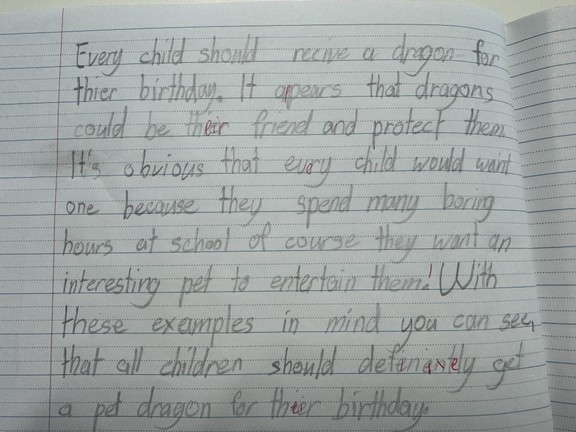 Every child should recive a dragon for
thier birthday. It apears that dragons
could be their friend and protect them.
It's obvious that every child would want
one because they spend many boring
hours at school of course they want an
interesting pet to entertain them! With
these examples in mind you can see,
that all children should definaxely get
a pet dragon for their birthday.